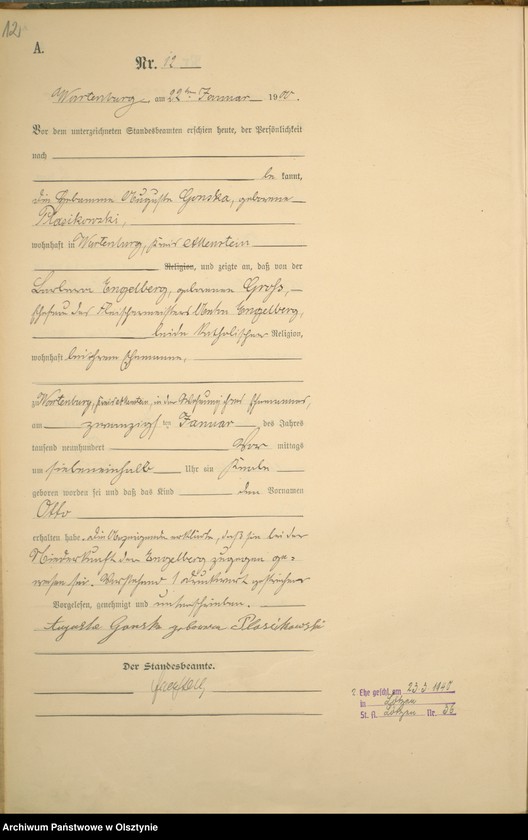 12
A.
Nr. 12
Wartenburg, am 22ten Januar 1900.
Vor dem unterzeichneten Standesbeamten erschien heute, der Persönlichkeit
nach
be kannt,
die Hebamme Auguste Gonska, geborene
Plasikowski,
wohnhaft in Wartenburg, Kreis Allenstein
Religion, und zeigte an, daß von der
Barbara Engelberg, geborenen Groß,
Ehefrau des Fleischermeisters Anton Engelberg,
beide katholischer Religion,
wohnhaft bei ihrem Ehemanne,
zu Wartenburg, Kreis Allenstein, in der Wohnung ihres Ehemannes,
am zwanzigsten Januar des Jahres
tausend neunhundert Vor mittags
um siebeneinhalb Uhr ein Knabe
geboren worden sei und daß das Kind den Vornamen
Otto
erhalten habe. Die Anzeigende erklärte, daß sie bei der
Niederkunft der Engelberg zugegen ge-
wesen sei. Vorstehend 1 Druckwort gestrichen
Vorgelesen, genehmigt und unterschrieben.
Auguste Gonska geborene Plasikowski
Der Standesbeamte.
2. Ehe geschl. am 23.3.1940
in Lötzen
St. A. Lötzen Nr. 36
Archiwum Państwowe w Olsztynie